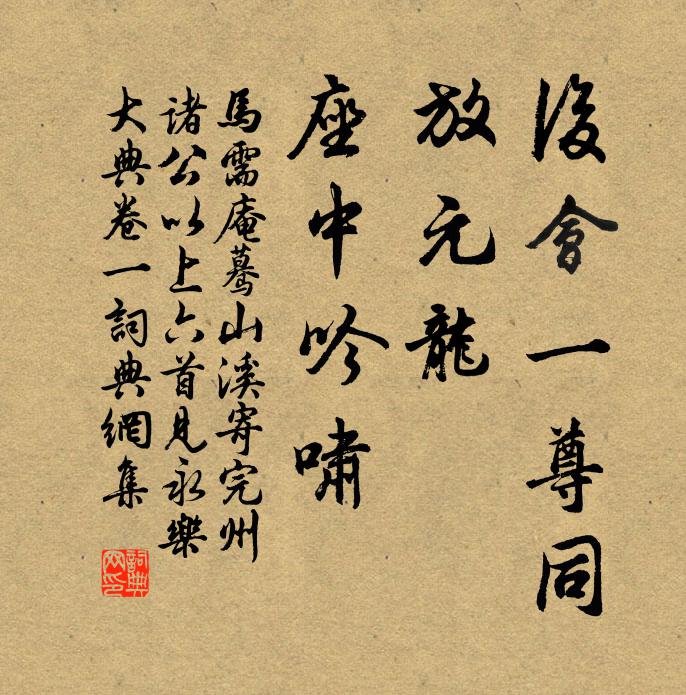 後會一尊同
放元龍
座中吟嘯
馬需庵驀山溪寄完州
諸公以上六首見永樂
大典卷一詞典網集
詞典
網印